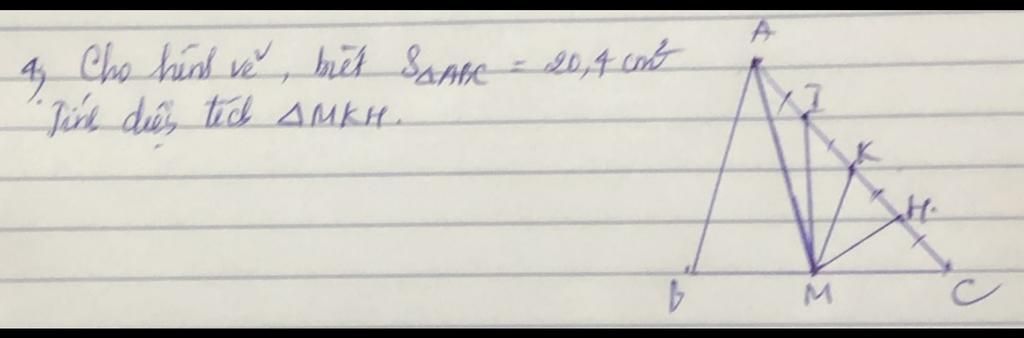 4, Cho hình vẽ, biết S∆ABC = 20,4 cm²
Tính diện tích ∆MKH.
A
I
K
H.
B M C